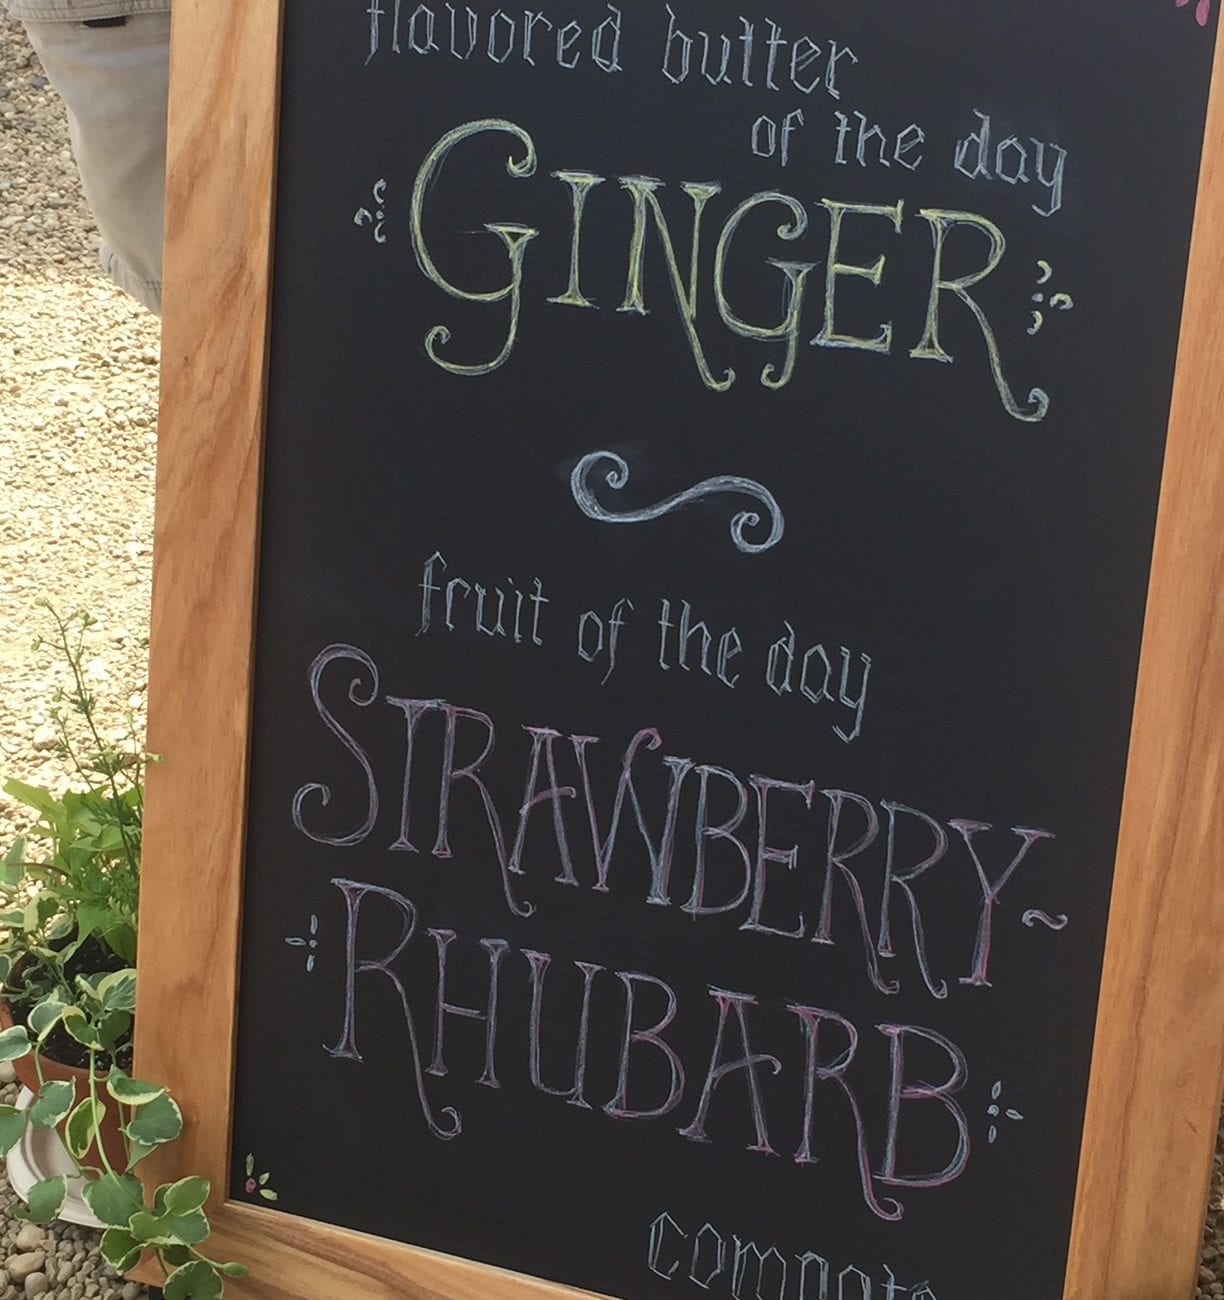 flavored butter
of the day
GINGER
fruit of the day
STRAWBERRY~
RHUBARB
compote